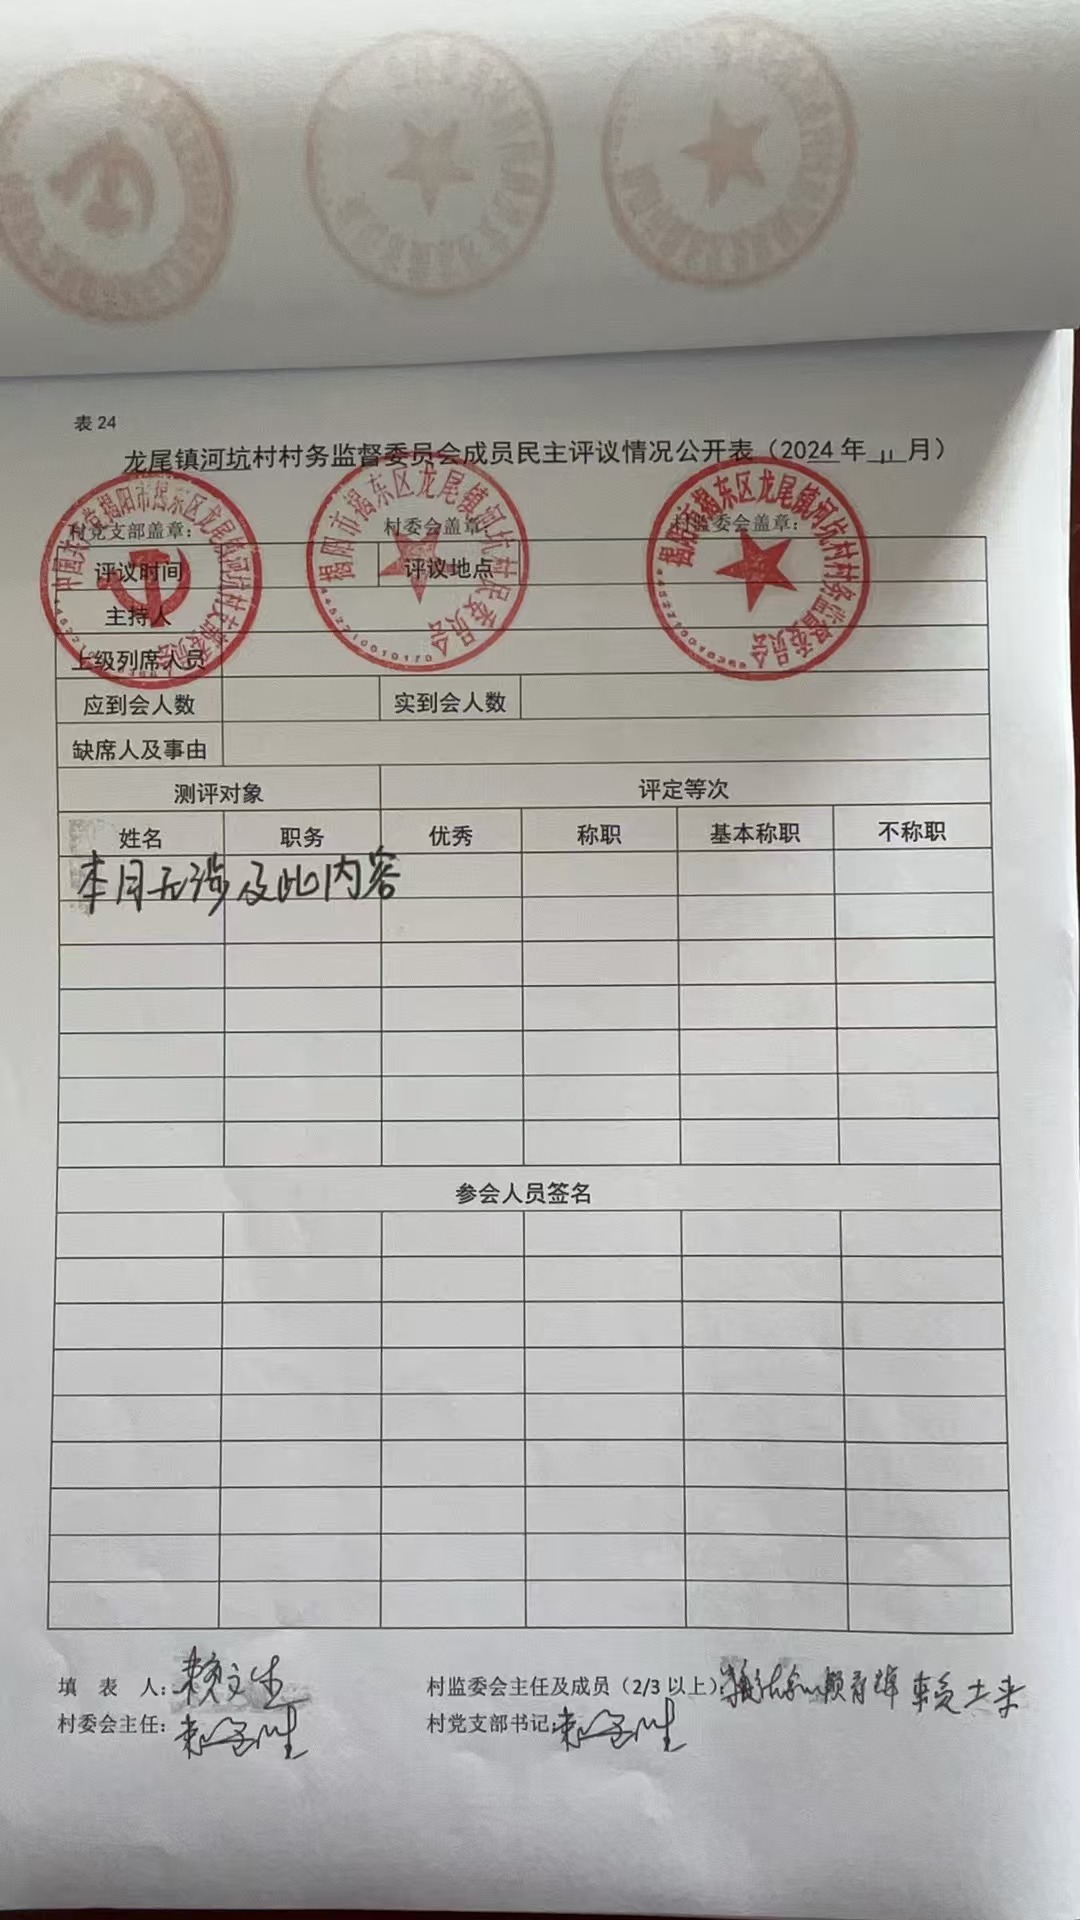 表 24
龙尾镇河坑村村务监督委员会成员民主评议情况公开表（2024 年 11 月）
村党支部盖章： 村委会盖章： 村监委会盖章：
评议时间 评议地点
主持人
上级列席人员
应到会人数 实到会人数
缺席人及事由
测评对象 评定等次
姓名 职务 优秀 称职 基本称职 不称职
本月无涉及此内容
参会人员签名
填 表 人：赖文生 村监委会主任及成员（2/3 以上）：
村委会主任： 村党支部书记：
揭阳市揭东区龙尾镇河坑村民委员会
4452210010170
揭阳市揭东区龙尾镇河坑村村务监督委员会